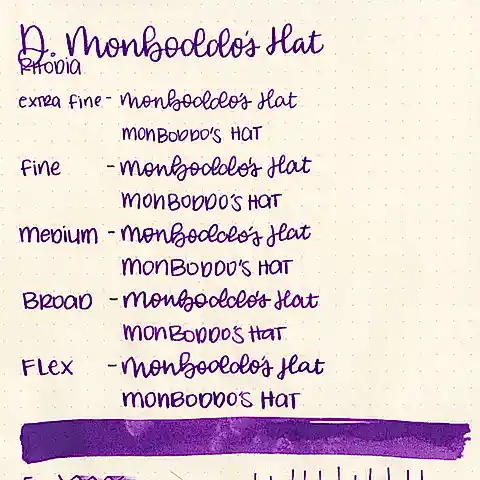 D. Monboddo's Hat
Rhodia
extra fine - Monboddo's Hat
MONBODDO'S HAT
Fine - Monboddo's Hat
MONBODDO'S HAT
Medium - Monboddo's Hat
MONBODDO'S HAT
BROAD - Monboddo's Hat
MONBODDO'S HAT
FLEX - Monboddo's Hat
MONBODDO'S HAT